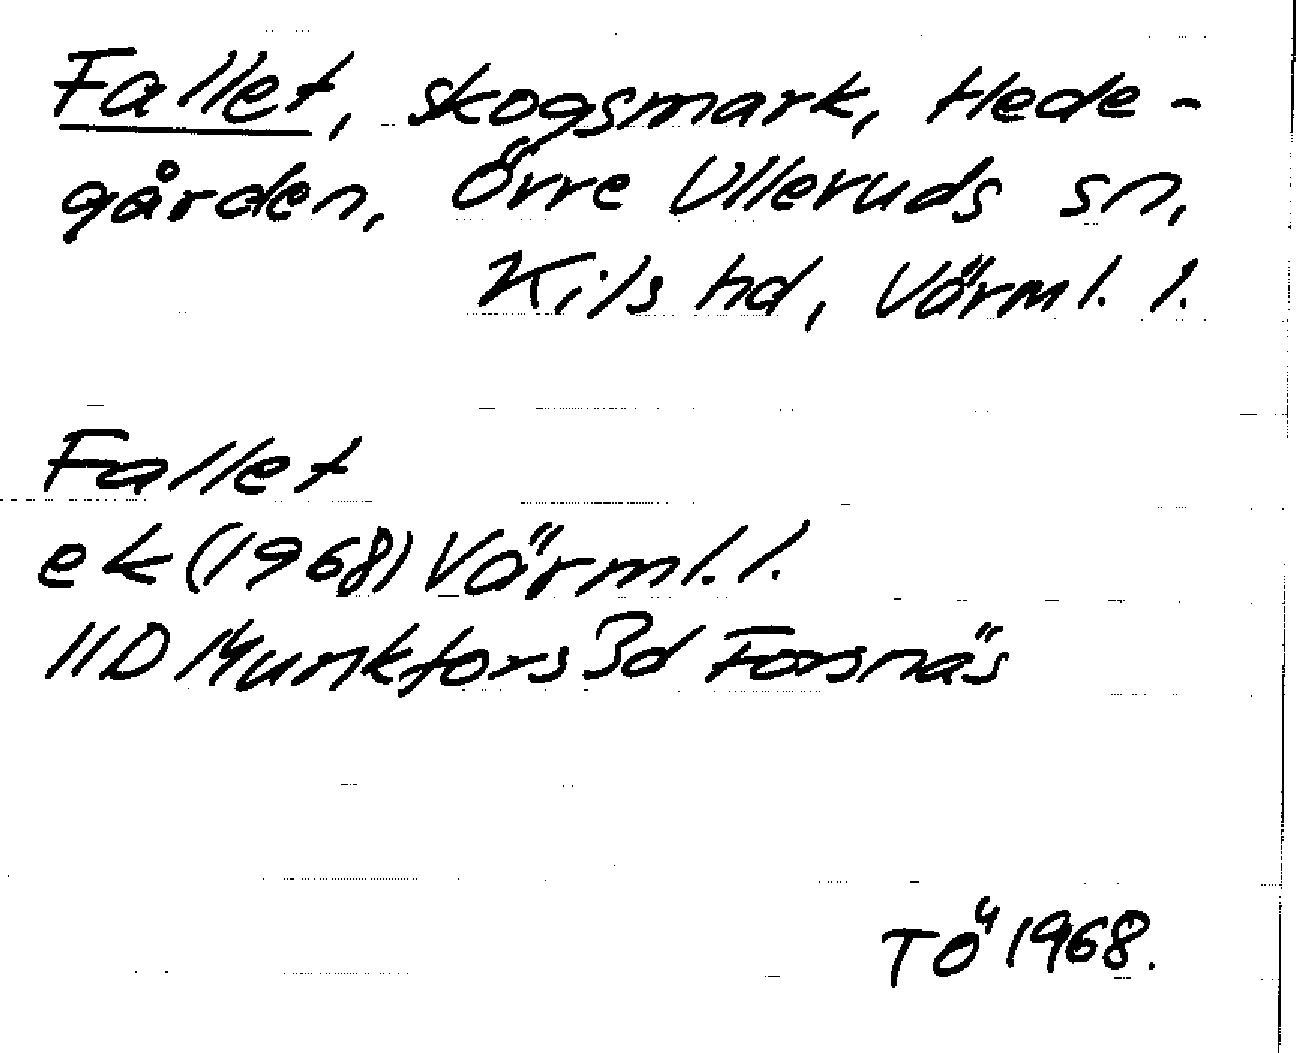 Fallet, skogsmark, Hede-
gården, Övre Ulleruds sn,
Kils hd, Värml. l.
Fallet
ek (1968) Värml. l.
11D Munkfors 3d Forsnäs
TÖ 1968.